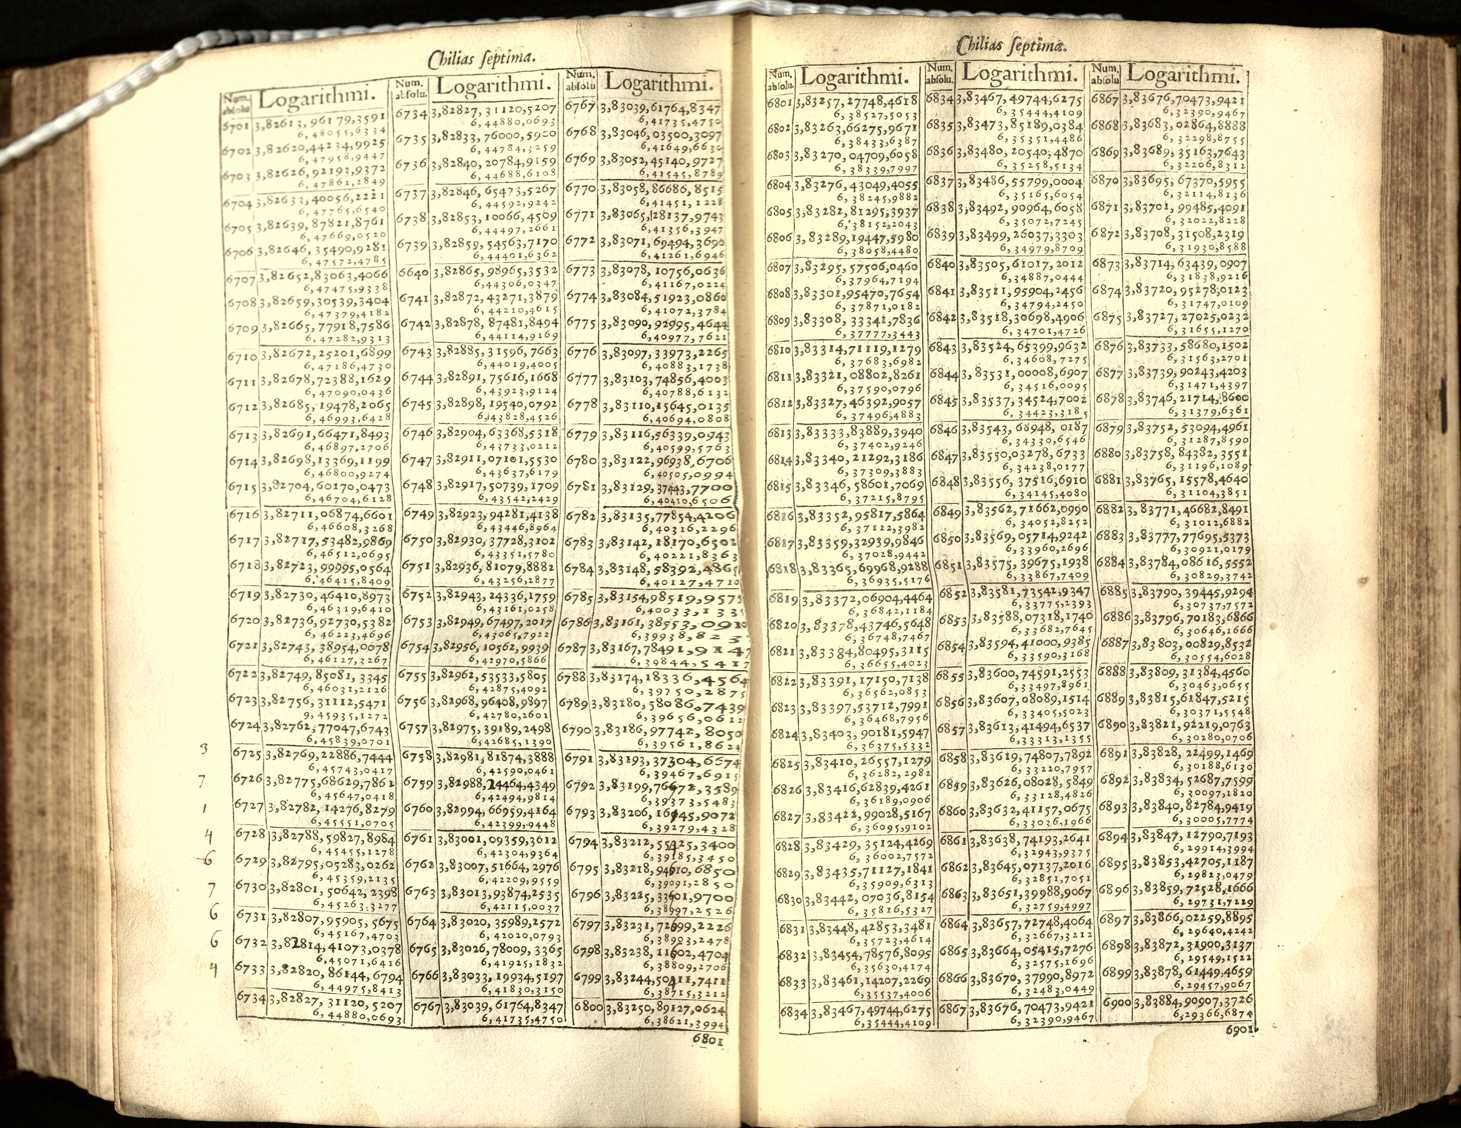 Chilias septima.
Num. absolu.
Logarithmi.
6701 3,82613,96179,3591
6,48055,6334
6702 3,82620,44234,9925
6,47958,9447
6703 3,82626,92193,9372
6,47861,2849
6704 3,82633,40056,2221
6,47765,6540
6705 3,82639,87821,8761
6,47669,0520
6706 3,82646,35490,9281
6,47572,4785
6707 3,82652,83063,4066
6,47475,9338
6708 3,82659,30539,3404
6,47379,4182
6709 3,82665,77918,7586
6,47282,9313
6710 3,82672,25201,6899
6,47186,4730
6711 3,82678,72388,1629
6,47090,0436
6712 3,82685,19478,2065
6,46993,6428
6713 3,82691,66471,8493
6,46897,2706
6714 3,82698,13369,1199
6,46800,9274
6715 3,82704,60170,0473
6,46704,6128
6716 3,82711,06874,6601
6,46608,3268
6717 3,82717,53482,9869
6,46512,0695
6718 3,82723,99995,0564
6,46415,8409
6719 3,82730,46410,8973
6,46319,6410
6720 3,82736,92730,5382
6,46223,4696
6721 3,82743,38954,0078
6,46127,3267
6722 3,82749,85081,3345
6,46031,2126
6723 3,82756,31112,5471
9,45935,1272
6724 3,82762,77047,6743
6,45839,0701
6725 3,82769,22886,7444
6,45743,0417
6726 3,82775,68629,7862
6,45647,0418
6727 3,82782,14276,8279
6,45551,0705
6728 3,82788,59827,8984
6,45455,1278
6729 3,82795,05283,0262
6,45359,2135
6730 3,82801,50642,2398
6,45263,3277
6731 3,82807,95905,5675
6,45167,4703
6732 3,82814,41073,0378
6,45071,6416
6733 3,82820,86144,6794
6,44975,8413
6734 3,82827,31120,5207
6,44880,0693
3
7
1
4
6
7
6
6
4
Num. absolu.
Logarithmi.
6734 3,82827,31120,5207
6,44880,0693
6735 3,82833,76000,5900
6,44784,3259
6736 3,82840,20784,9159
6,44688,6108
6737 3,82846,65473,5267
6,44592,9242
6738 3,82853,10066,4509
6,44497,2661
6739 3,82859,54563,7170
6,44401,6362
6640 3,82865,98965,3532
6,44306,0347
6741 3,82872,43271,3879
6,44210,4615
6742 3,82878,87481,8494
6,44114,9169
6743 3,82885,31596,7663
6,44019,4005
6744 3,82891,75616,1668
6,43923,9124
6745 3,82898,19540,0792
6,43828,4526
6746 3,82904,63368,5318
6,43733,0212
6747 3,82911,07101,5530
6,43637,6179
6748 3,82917,50739,1709
6,43542,2429
6749 3,82923,94281,4138
6,43446,8964
6750 3,82930,37728,3102
6,43351,5780
6751 3,82936,81079,8882
6,43256,2877
6752 3,82943,24336,1759
6,43161,0258
6753 3,82949,67497,2017
6,43065,7922
6754 3,82956,10562,9939
6,42970,5866
6755 3,82962,53533,5805
6,42875,4092
6756 3,82968,96408,9897
6,42780,2601
6757 3,82975,39189,2498
6,42685,1390
6758 3,82981,81874,3888
6,42590,0461
6759 3,82988,24464,4349
6,42494,9814
6760 3,82994,66959,4164
6,42399,9448
6761 3,83001,09359,3612
6,42304,9364
6762 3,83007,51664,2976
6,42209,9559
6763 3,83013,93874,2535
6,42115,0037
6764 3,83020,35989,2572
6,42020,0793
6765 3,83026,78009,3365
6,41925,1832
6766 3,83033,19934,5197
6,41830,3150
6767 3,83039,61764,8347
6,41735,4750
Num. absolu
Logarithmi.
6767 3,83039,61764,8347
6,41735,4750
6768 3,83046,03500,3097
6,41640,6630
6769 3,83052,45140,9727
6,41545,8789
6770 3,83058,86686,8515
6,41451,1228
6771 3,83065,28137,9743
6,41356,3947
6772 3,83071,69494,3690
6,41261,6946
6773 3,83078,10756,0636
6,41167,0224
6774 3,83084,51923,0860
6,41072,3784
6775 3,83090,92995,4644
6,40977,7621
6776 3,83097,33973,2265
6,40883,1738
6777 3,83103,74856,4003
6,40788,6132
6778 3,83110,15645,0135
6,40694,0808
6779 3,83116,56339,0943
6,40599,5763
6780 3,83122,96938,6706
6,40505,0994
6781 3,83129,37443,7700
6,40410,6506
6782 3,83135,77854,4206
6,40316,2296
6783 3,83142,18170,6502
6,40221,8363
6784 3,83148,58392,4865
6,40127,4710
6785 3,83154,98519,9575
6,40033,1335
6786 3,83161,38553,0910
6,39938,823
6787 3,83167,78491,9147
6,39844,5417
6788 3,83174,18336,4564
6,39750,2875
6789 3,83180,58086,7439
6,39656,0612
6790 3,83186,97742,8050
6,39561,8624
6791 3,83193,37304,6674
6,39467,6915
6792 3,83199,76772,3589
6,39373,5483
6793 3,83206,16145,9072
6,39279,4328
6794 3,83212,55425,3400
6,39185,3450
6795 3,83218,94610,6850
6,39091,2850
6796 3,83225,33701,9700
6,38997,2526
6797 3,83231,72699,2226
6,38903,2478
6798 3,83238,11602,4704
6,38809,2706
6799 3,83244,50411,7411
6,38715,3212
6800 3,83250,89127,0624
6,38621,3994
6801
Chilias septima.
Num. absolu.
Logarithmi.
6801 3,83257,27748,4618
6,38527,5053
6802 3,83263,66275,9671
6,38433,6387
6803 3,83270,04709,6058
6,38339,7997
6804 3,83276,43049,4055
6,38245,9882
6805 3,83282,81295,3937
6,38152,2043
6806 3,83289,19447,5980
6,38058,4480
6807 3,83295,57506,0460
6,37964,7194
6808 3,83301,95470,7654
6,37871,0182
6809 3,83308,33341,7836
6,37777,3443
6810 3,83314,71119,1279
6,37683,6982
6811 3,83321,08802,8261
6,37590,0796
6812 3,83327,46392,9057
6,37496,4883
6813 3,83333,83889,3940
6,37402,9246
6814 3,83340,21292,3186
6,37309,3883
6815 3,83346,58601,7069
6,37215,8795
6816 3,83352,95817,5864
6,37122,3982
6817 3,83359,32939,9846
6,37028,9442
6818 3,83365,69968,9288
6,36935,5176
6819 3,83372,06904,4464
6,36842,1184
6820 3,83378,43746,5648
6,36748,7467
6821 3,83384,80495,3115
6,36655,4023
6822 3,83391,17150,7138
6,36562,0853
6823 3,83397,53712,7991
6,36468,7956
6824 3,83403,90181,5947
6,36375,5332
6825 3,83410,26557,1279
6,36282,2982
6826 3,83416,62839,4261
6,36189,0906
6827 3,83422,99028,5167
6,36095,9102
6828 3,83429,35124,4269
6,36002,7572
6829 3,83435,71127,1841
6,35909,6313
6830 3,83442,07036,8154
6,35816,5327
6831 3,83448,42853,3481
6,35723,4614
6832 3,83454,78576,8095
6,35630,4174
6833 3,83461,14207,2269
6,35537,4006
6834 3,83467,49744,6275
6,35444,4109
Num. absolu.
Logarithmi.
6834 3,83467,49744,6275
6,35444,4109
6835 3,83473,85189,0384
6,35351,4486
6836 3,83480,20540,4870
6,35258,5134
6837 3,83486,55799,0004
6,35165,6054
6838 3,83492,90964,6058
6,35072,7245
6839 3,83499,26037,3303
6,34979,8709
6840 3,83505,61017,2012
6,34887,0444
6841 3,83511,95904,2456
6,34794,2450
6842 3,83518,30698,4906
6,34701,4726
6843 3,83524,65399,9632
6,34608,7275
6844 3,83531,00008,6907
6,34516,0095
6845 3,83537,34524,7002
6,34423,3185
6846 3,83543,68948,0187
6,34330,6546
6847 3,83550,03278,6733
6,34238,0177
6848 3,83556,37516,6910
6,34145,4080
6849 3,83562,71662,0990
6,34052,8252
6850 3,83569,05714,9242
6,33960,2696
6851 3,83575,39675,1938
6,33867,7409
6852 3,83581,73542,9347
6,33775,2393
6853 3,83588,07318,1740
6,33682,7645
6854 3,83594,41000,9385
6,33590,3168
6855 3,83600,74591,2553
6,33497,8961
6856 3,83607,08089,1514
6,33405,5023
6857 3,83613,41494,6537
6,33313,1355
6858 3,83619,74807,7892
6,33220,7957
6859 3,83626,08028,5849
6,33128,4826
6860 3,83632,41157,0675
6,33036,1966
6861 3,83638,74193,2641
6,32943,9375
6862 3,83645,07137,2016
6,32851,7051
6863 3,83651,39988,9067
6,32759,4997
6864 3,83657,72748,4064
6,32667,3212
6865 3,83664,05415,7276
6,32575,1696
6866 3,83670,37990,8972
6,32483,0449
6867 3,83676,70473,9421
6,32390,9467
Num. absolu
Logarithmi.
6867 3,83676,70473,9421
6,32390,9467
6868 3,83683,02864,8888
6,32298,8755
6869 3,83689,35163,7643
6,32206,8312
6870 3,83695,67370,5955
6,32114,8136
6871 3,83701,99485,4091
6,32022,8228
6872 3,83708,31508,2319
6,31930,8588
6873 3,83714,63439,0907
6,31838,9216
6874 3,83720,95278,0123
6,31747,0109
6875 3,83727,27025,0232
6,31655,1270
6876 3,83733,58680,1502
6,31563,2701
6877 3,83739,90243,4203
6,31471,4397
6878 3,83746,21714,8600
6,31379,6361
6879 3,83752,53094,4961
6,31287,8590
6880 3,83758,84382,3551
6,31196,1089
6881 3,83765,15578,4640
6,31104,3851
6882 3,83771,46682,8491
6,31012,6882
6883 3,83777,77695,5373
6,30921,0179
6884 3,83784,08616,5552
6,30829,3742
6885 3,83790,39445,9294
6,30737,7572
6886 3,83796,70183,6866
6,30646,1666
6887 3,83803,00829,8532
6,30554,6028
6888 3,83809,31384,4560
6,30463,0655
6889 3,83815,61847,5215
6,30371,5548
6890 3,83821,92219,0763
6,30280,0706
6891 3,83828,22499,1469
6,30188,6130
6892 3,83834,52687,7599
6,30097,1820
6893 3,83840,82784,9419
6,30005,7774
6894 3,83847,12790,7193
6,29914,3994
6895 3,83853,42705,1187
6,29823,0479
6896 3,83859,72528,1666
6,29731,7229
6897 3,83866,02259,8895
6,29640,4242
6898 3,83872,31900,3137
6,29549,1522
6899 3,83878,61449,4659
6,29457,9067
6900 3,83884,90907,3726
6,29366,6874
6901